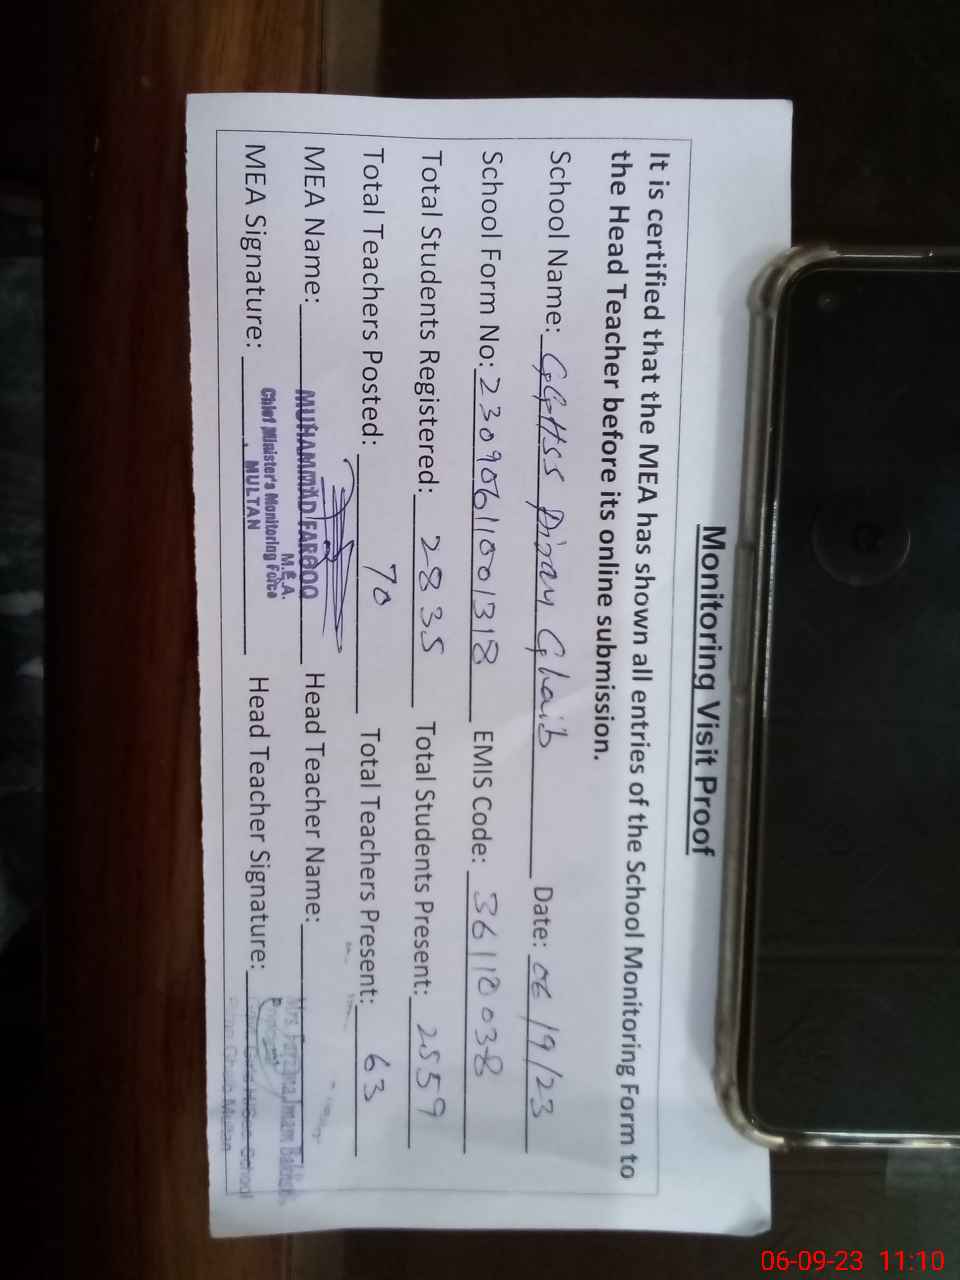 Monitoring Visit Proof
It is certified that the MEA has shown all entries of the School Monitoring Form to
the Head Teacher before its online submission.
School Name: GGHSS Piran Ghaib Date: 06/9/23
School Form No: 2309061001318 EMIS Code: 36110038
Total Students Registered: 2835 Total Students Present: 2559
Total Teachers Posted: 70 Total Teachers Present: 63
MEA Name: MUHAMMAD FAROOQ Head Teacher Name: Mrs Farzana Imam Bakhsh
M.E.A.
Chief Minister's Monitoring Force
MULTAN
MEA Signature: Head Teacher Signature:
School
Multan
06-09-23 11:10